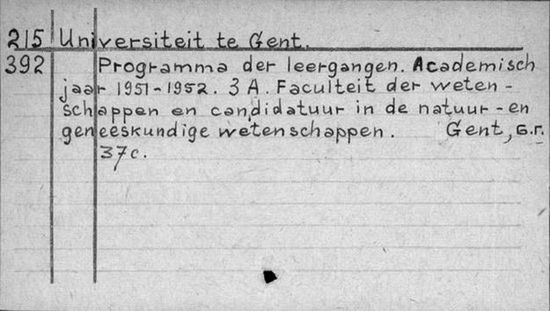 215 Universiteit te Gent.
392 Programma der leergangen. Academisch
jaar 1951-1952. 3 A. Faculteit der weten-
schappen en candidatuur in de natuur- en
geneeskundige wetenschappen. Gent, G.r.
37c.